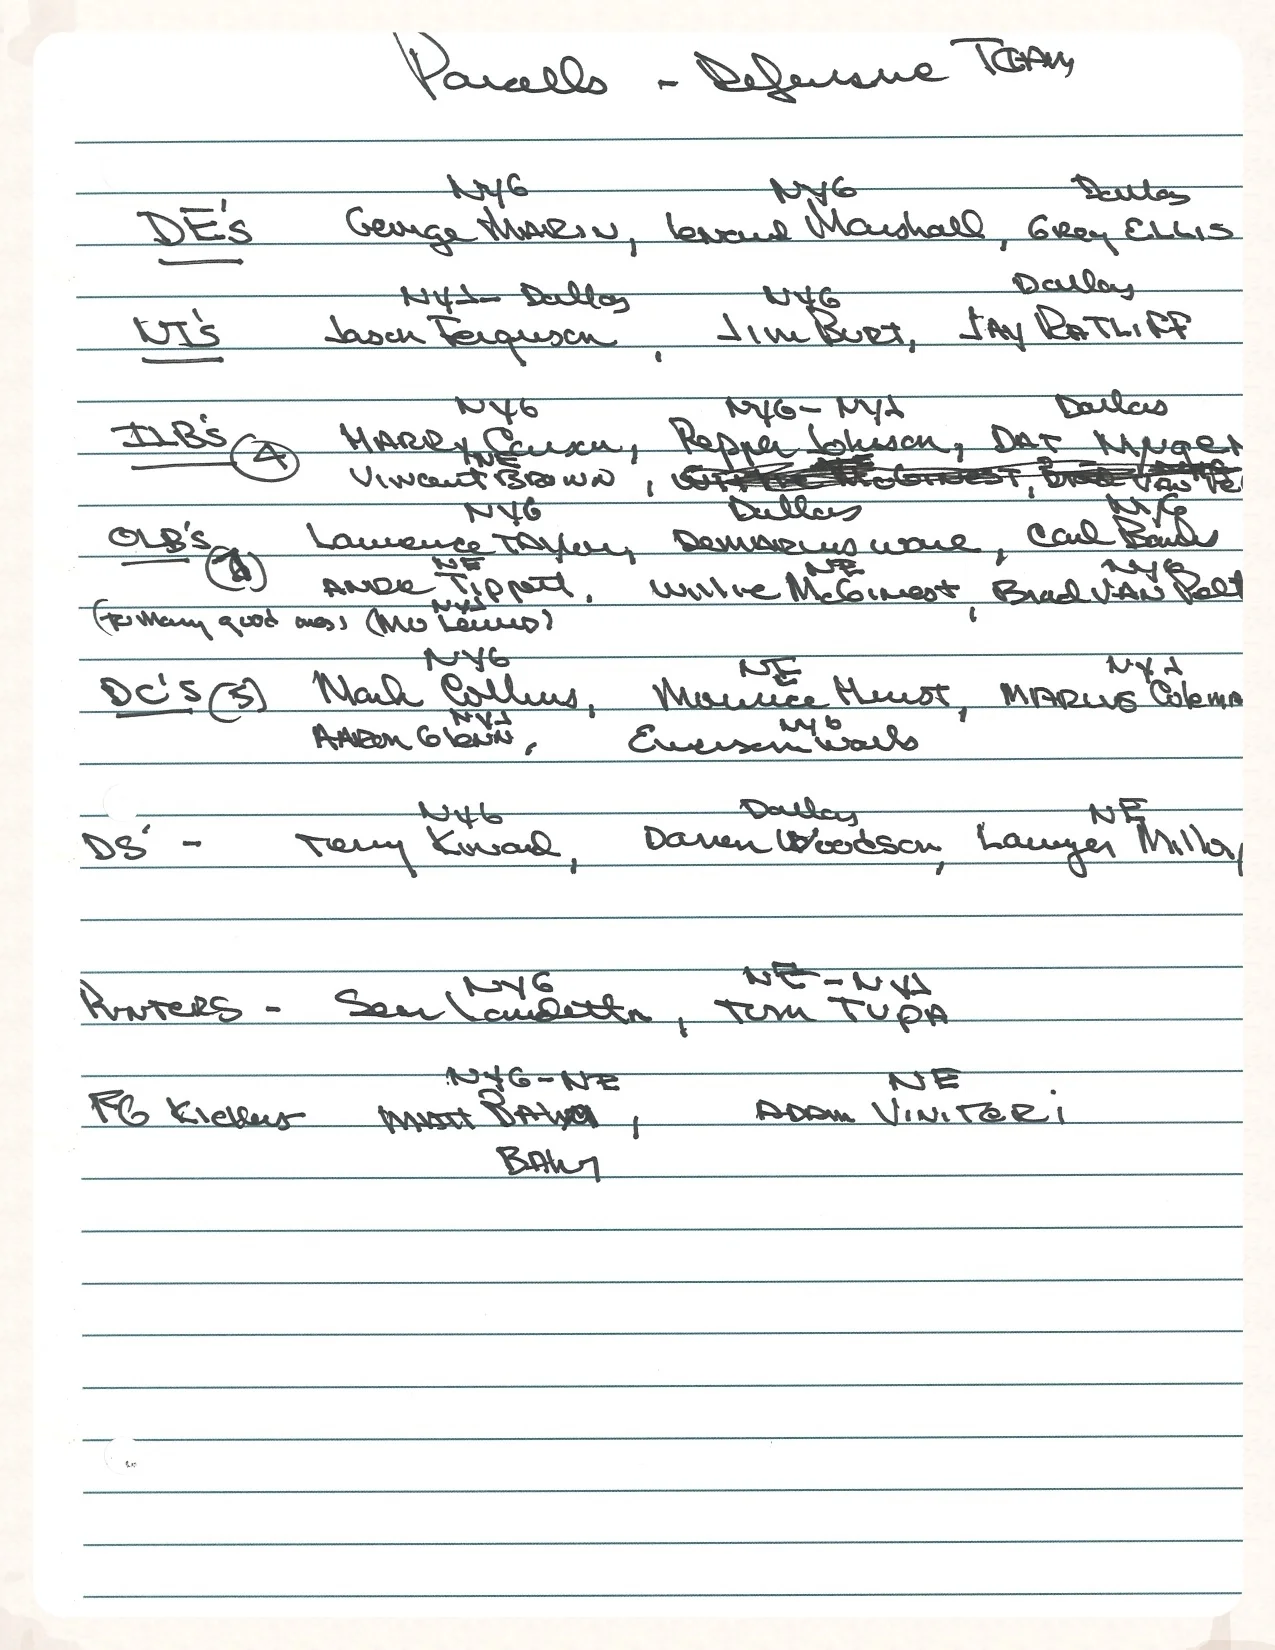 Parcells - Defensive TEAM
NYG NYG Dallas
DE'S George MARTIN, Leonard Marshall, Greg ELLIS
NYJ- Dallas NYG Dallas
NT'S Jason Ferguson, Jim BURT, JAY RATLIFF
NYG NYG- NYJ Dallas
ILB'S (4) HARRY Carson, Pepper Johnson, DAT
NE
Vincent BROWN, McGINEST, VAN
NYG Dallas NYG
OLB'S Lawrence TAYlor, DEMARCUS Ware, Carl Banks
NE NE NYG
ANDRE Tippett, Willie McGinest, Brad VAN Pelt
NYJ
(To Many good ones) (Mo Lewis)
NYG NE NYJ
DC'S (5) Mark Collins, Maurice Hurst, MARCUS Colema
NYJ NYG
AARON Glenn, Everson Walls
NYG Dallas NE
DS' - Terry Kinard, Darren Woodson, Lawyer Milloy
NYG NE - NYJ
PUNTERS - Sean Landetta, Tom TUPA
NYG-NE NE
FG Kickers MATT BAHR, ADAM VINITERi
BAHr